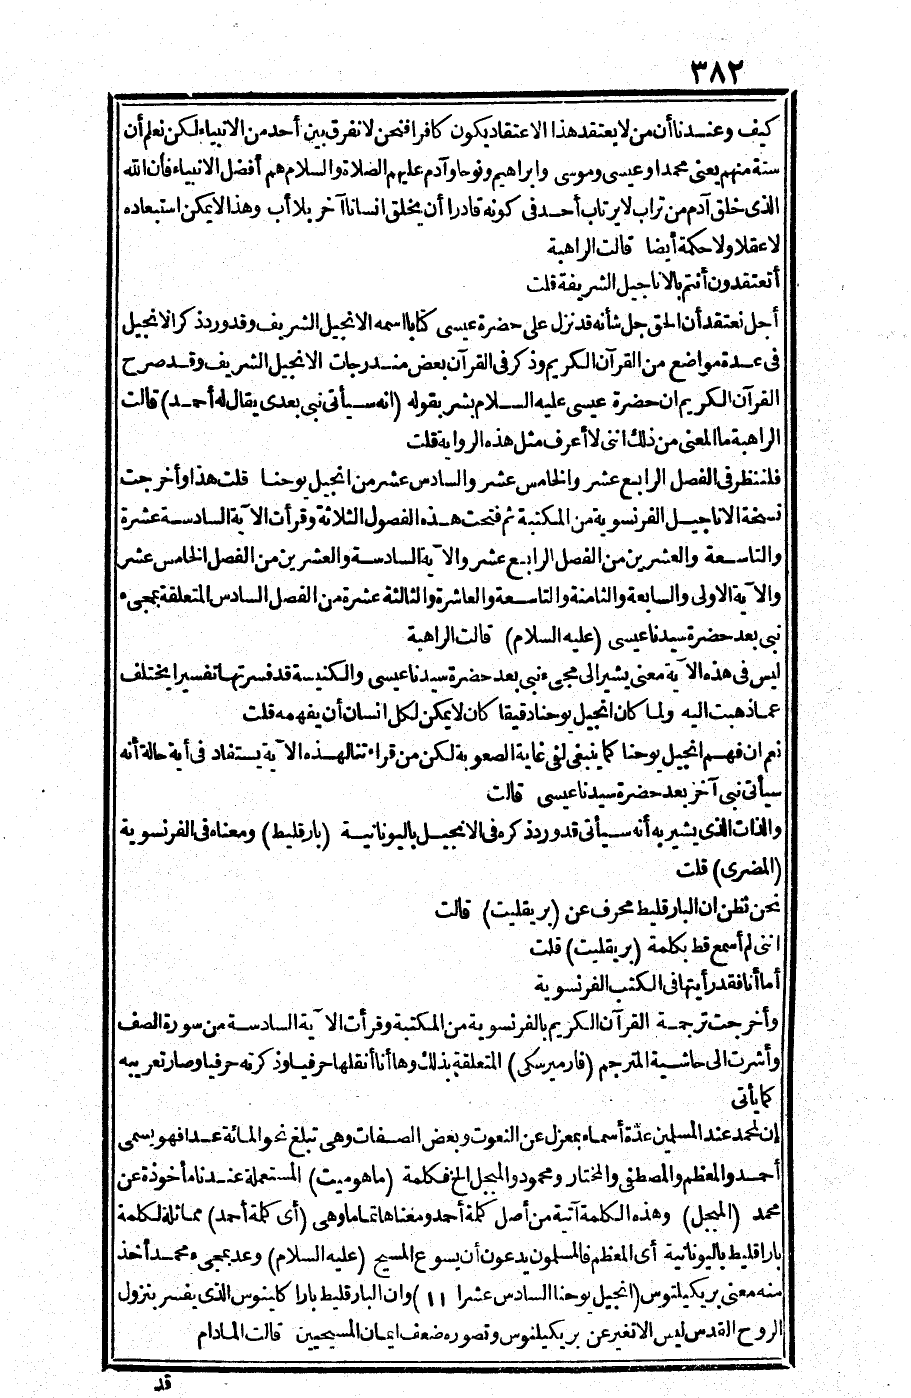 ٣٨٢
كيف وعندنا أن من لا يعتقد هذا الاعتقاد يكون كافرا فنحن لا نفرق بين أحد من الانبياء لكن نعلم أن
ستة منهم يعنى محمدا وعيسى وموسى وابراهيم ونوحا وآدم عليهم الصلاة والسلام هم أفضل الانبياء فأن الله
الذى خلق آدم من تراب لا يرتاب أحد فى كونه قادرا أن يخلق انسانا آخر بلا أب وهذا لا يمكن استبعاده
لا عقلا ولا حكمة أيضا قالت الراهبة
أتعتقدون أنتم بالاناجيل الشريفة قلت
أجل نعتقد أن الحق جل شأنه قد نزل على حضرة عيسى كتابا اسمه الانجيل الشريف وقد ورد ذكر الانجيل
فى عدة مواضع من القرآن الكريم وذكر فى القرآن بعض مندرجات الانجيل الشريف وقد صرح
القرآن الكريم ان حضرة عيسى عليه السلام بشر بقوله (انه سيأتى نبى بعدى يقال له أحمد) قالت
الراهبة ما المعنى من ذلك اننى لا أعرف مثل هذه الرواية قلت
فلننظر فى الفصل الرابع عشر والخامس عشر والسادس عشر من انجيل يوحنا قلت هذا وأخرجت
نسخة الاناجيل الفرنسوية من المكتبة ثم فتحت هذه الفصول الثلاثة وقرأت الآية السادسة عشرة
والتاسعة والعشرين من الفصل الرابع عشر والآية السادسة والعشرين من الفصل الخامس عشر
والآية الاولى والسابعة والثامنة والتاسعة والعاشرة والثالثة عشرة من الفصل السادس المتعلقة بمجىء
نبى بعد حضرة سيدنا عيسى (عليه السلام) قالت الراهبة
ليس فى هذه الآية معنى يشير الى مجىء نبى بعد حضرة سيدنا عيسى والكنيسة قد فسرتها تفسيرا يختلف
عما ذهبت اليه ولما كان انجيل يوحنا دقيقا كان لا يمكن لكل انسان أن يفهمه قلت
نعم ان فهم انجيل يوحنا كما ينبغى لفى غاية الصعوبة لكن من قراءتنا لهذه الآية يستفاد فى أية حالة أنه
سيأتى نبى آخر بعد حضرة سيدنا عيسى قالت
والذات الذى يشير به أنه سيأتى قد ورد ذكره فى الانجيل باليونانية (بارقليط) ومعناه فى الفرنسوية
(المضرى) قلت
نحن نظن ان البارقليط محرف عن (بريقليت) قالت
اننى لم أسمع قط بكلمة (بريقليت) قلت
أما أنا فقد رأيتها فى الكتب الفرنسوية
وأخرجت ترجمة القرآن الكريم بالفرنسوية من المكتبة وقرأت الآية السادسة من سورة الصف
وأشرت الى حاشية المترجم (قازميرسكى) المتعلقة بذلك وها أنا أنقلها حرفيا وذكرته حرفيا وصار تعريبه
كما يأتى
إن لمحمد عند المسلمين عدّة أسماء بمعزل عن النعوت وبعض الصفات وهى تبلغ نحو المائة عدا فهو يسمى
أحمد والمعظم والمصطفى والمختار ومحمود والمبجل الخ فكلمة (ماهوميت) المستعملة عندنا مأخوذة عن
محمد (المبجل) وهذه الكلمة آتية من أصل كلمة أحمد ومعناها تماما وهى (أى كلمة أحمد) مماثلة لكلمة
باراقليط باليونانية أى المعظم فالمسلمون يدعون أن يسوع المسيح (عليه السلام) وعد بمجىء محمد أخذ
منه معنى بريكيلتوس (انجيل يوحنا السادس عشر ١١) وان البارقليط بارا كليتوس الذى يفسر بنزول
الروح القدس ليس الا تغير عن بريكيلتوس وتصوره ضعف ايمان المسيحيين قالت المادام
قد